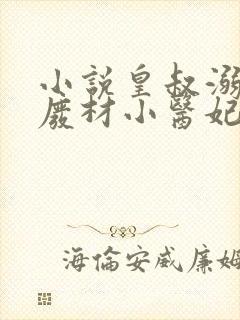 小說皇叔溺
廢材小醫妃
海倫安威廉姆